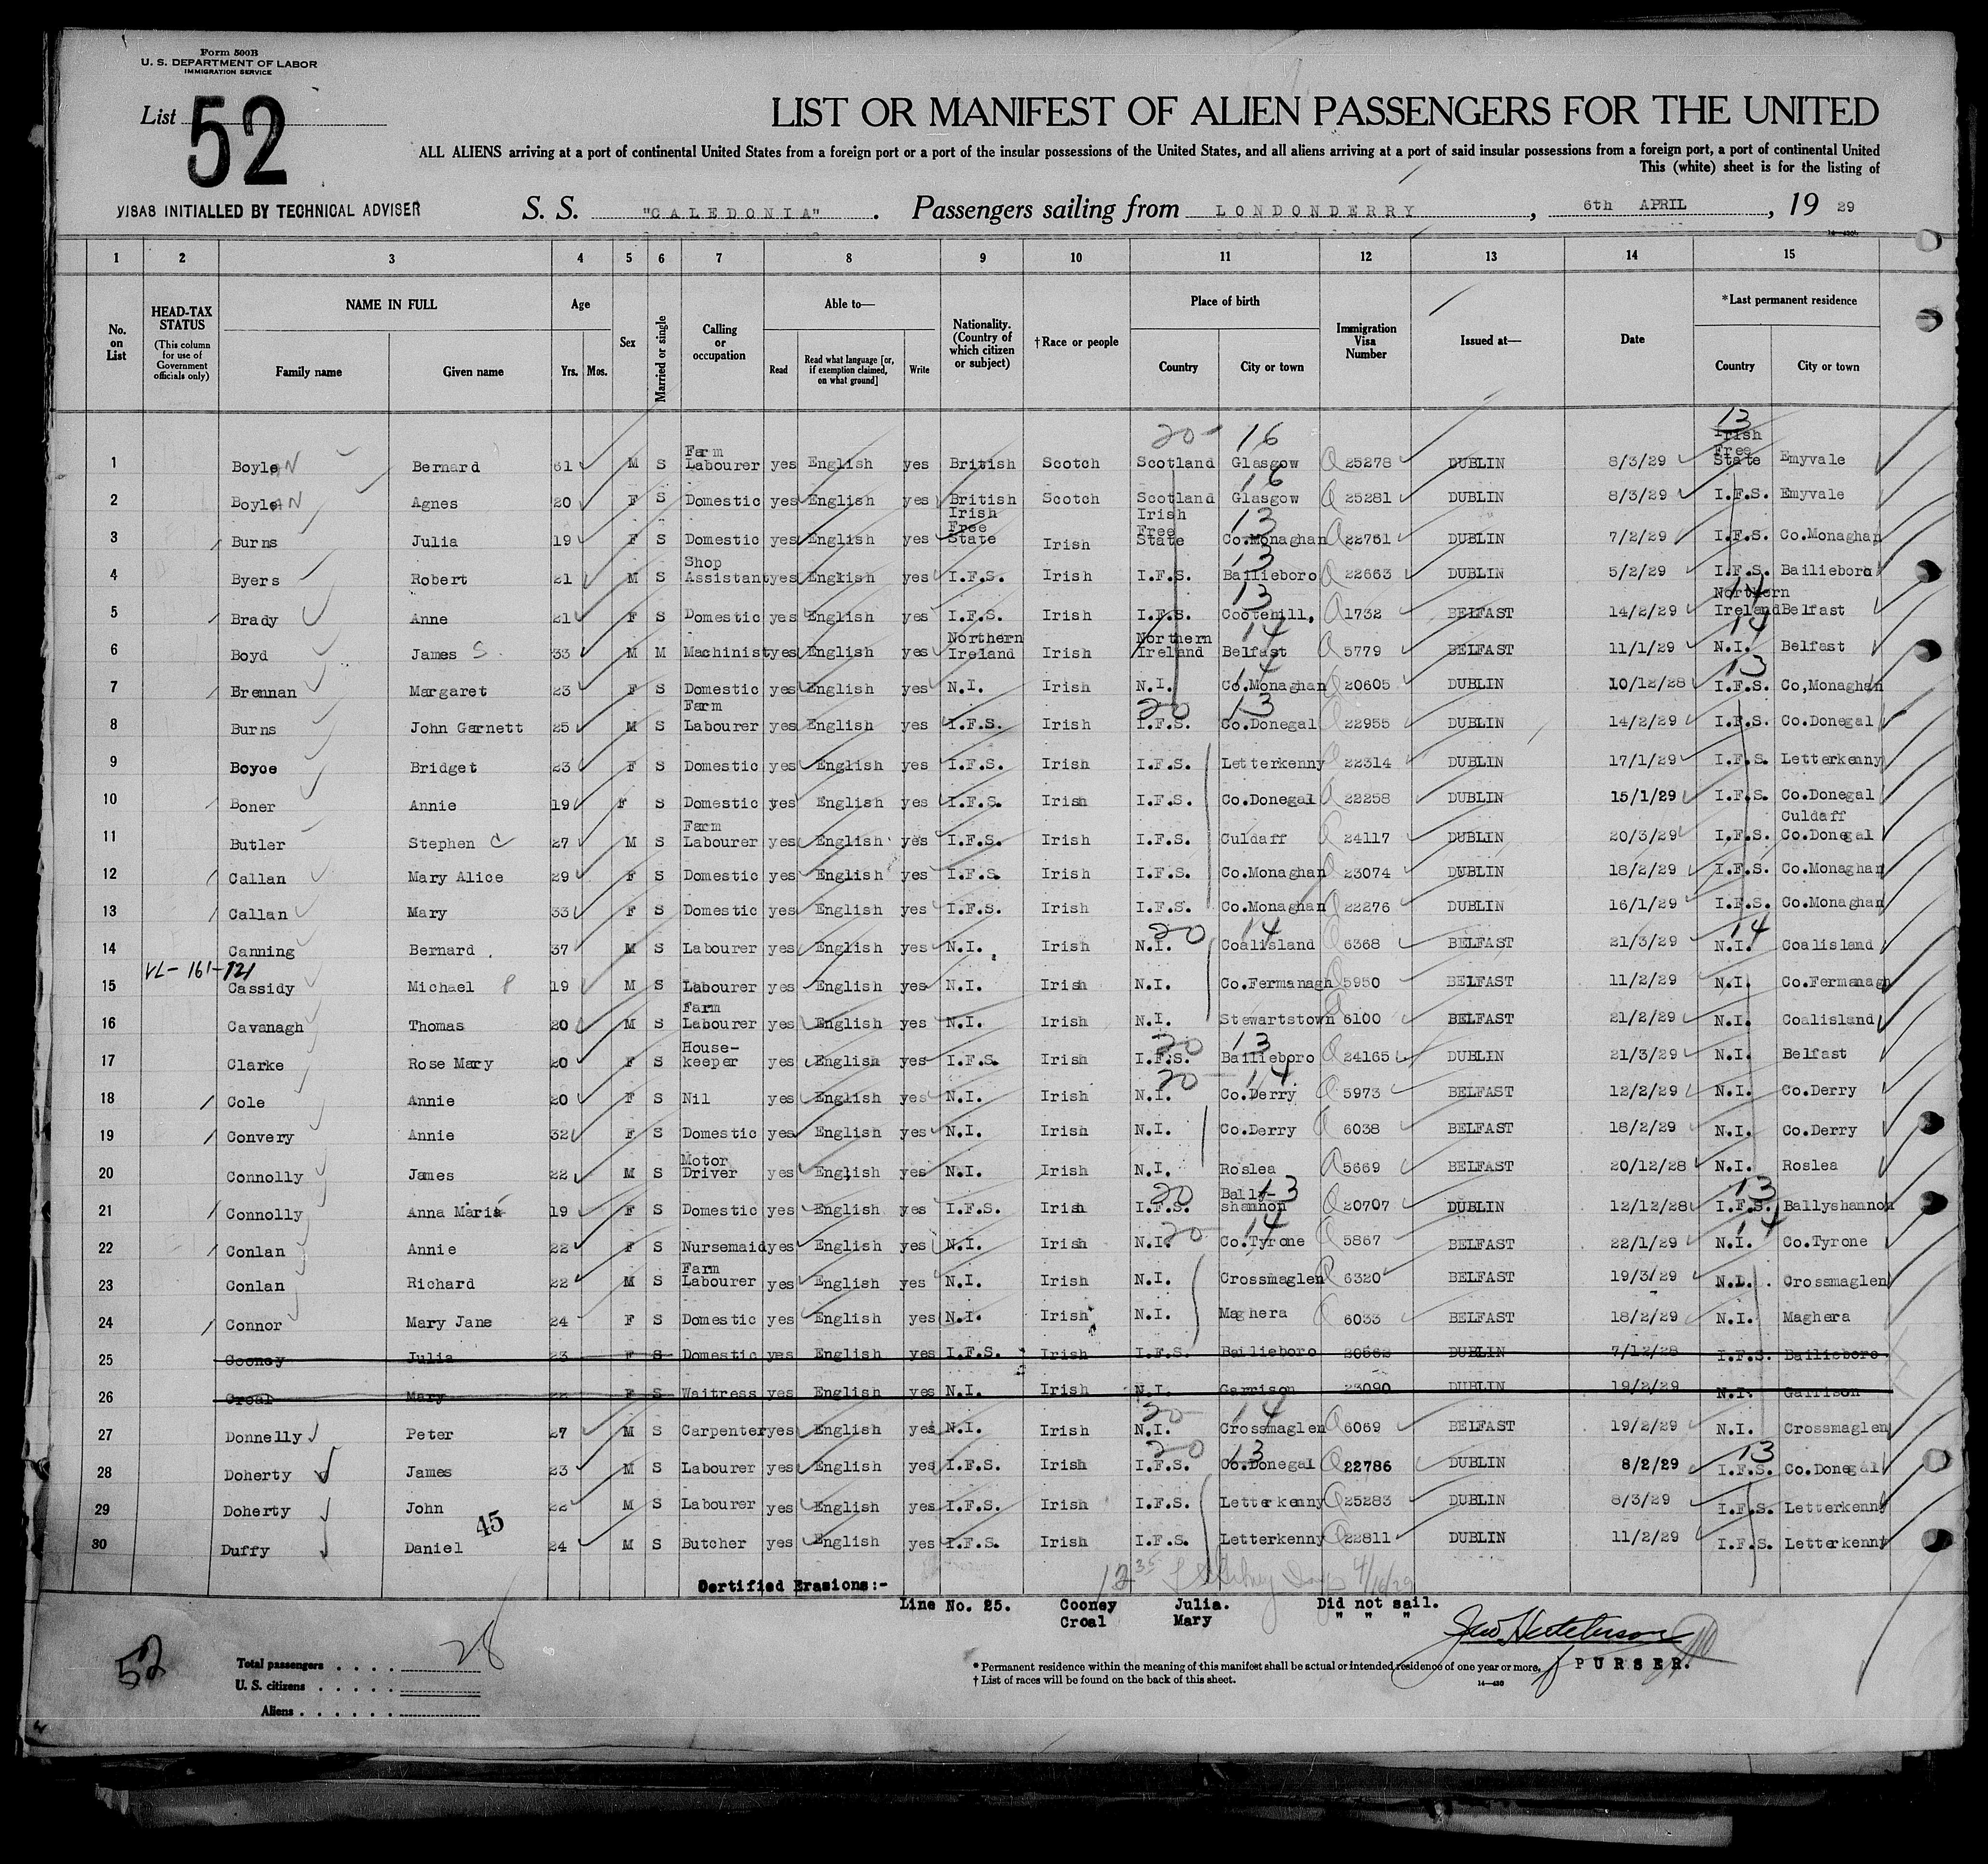 Form 500B
U. S. DEPARTMENT OF LABOR
IMMIGRATION SERVICE
List 52
LIST OR MANIFEST OF ALIEN PASSENGERS FOR THE UNITED
ALL ALIENS arriving at a port of continental United States from a foreign port or a port of the insular possessions of the United States, and all aliens arriving at a port of said insular possessions from a foreign port, a port of continental United
This (white) sheet is for the listing of
VISAS INITIALLED BY TECHNICAL ADVISER S. S. "CALEDONIA". Passengers sailing from LONDONDERRY, 6th APRIL, 19 29
1 2 3 4 5 6 7 8 9 10 11 12 13 14 15
No. on List HEAD-TAX STATUS (This column for use of Government officials only) NAME IN FULL Family name Given name Age Yrs. Mos. Sex Married or single Calling or occupation Able to— Read Read what language [or, if exemption claimed, on what ground] Write Nationality. (Country of which citizen or subject) †Race or people Place of birth Country City or town Immigration Visa Number Issued at— Date *Last permanent residence Country City or town
20- 16 13
1 Boyle AN Bernard 61 M S Farm Labourer yes English yes British Scotch Scotland Glasgow 25278 DUBLIN 8/3/29 Irish Free State Emyvale
16
2 Boyle AN Agnes 20 F S Domestic yes English yes British Scotch Scotland Glasgow 25281 DUBLIN 8/3/29 I.F.S. Emyvale
13
3 Burns Julia 19 F S Domestic yes English yes Irish Free State Irish Irish Free State Co.Monaghan 22761 DUBLIN 7/2/29 I.F.S. Co.Monaghan
13
4 Byers Robert 21 M S Shop Assistant yes English yes I.F.S. Irish I.F.S. Bailieboro 22663 DUBLIN 5/2/29 I.F.S. Bailieboro
13 14
5 Brady Anne 21 F S Domestic yes English yes I.F.S. Irish I.F.S. Cootehill, 1732 BELFAST 14/2/29 Northern Ireland Belfast
14 14
6 Boyd James S. 33 M M Machinist yes English yes Northern Ireland Irish Northern Ireland Belfast 5779 BELFAST 11/1/29 N.I. Belfast
14 13
7 Brennan Margaret 23 F S Domestic yes English yes N.I. Irish N.I. Co.Monaghan 20605 DUBLIN 10/12/28 I.F.S. Co,Monaghan
20 13
8 Burns John Garnett 25 M S Farm Labourer yes English yes I.F.S. Irish I.F.S. Co.Donegal 22955 DUBLIN 14/2/29 I.F.S. Co.Donegal
9 Boyce Bridget 23 F S Domestic yes English yes I.F.S. Irish I.F.S. Letterkenny 22314 DUBLIN 17/1/29 I.F.S. Letterkenny
10 Boner Annie 19 F S Domestic yes English yes I.F.S. Irish I.F.S. Co.Donegal 22258 DUBLIN 15/1/29 I.F.S. Co.Donegal
11 Butler Stephen C 27 M S Farm Labourer yes English yes I.F.S. Irish I.F.S. Culdaff 24117 DUBLIN 20/3/29 I.F.S. Culdaff Co.Donegal
12 Callan Mary Alice 29 F S Domestic yes English yes I.F.S. Irish I.F.S. Co.Monaghan 23074 DUBLIN 18/2/29 I.F.S. Co.Monaghan
13 Callan Mary 33 F S Domestic yes English yes I.F.S. Irish I.F.S. Co.Monaghan 22276 DUBLIN 16/1/29 I.F.S. Co.Monaghan
20 14 14
14 Canning Bernard 37 M S Labourer yes English yes N.I. Irish N.I. Coalisland 6368 BELFAST 21/3/29 N.I. Coalisland
VL- 161-721
15 Cassidy Michael P 19 M S Labourer yes English yes N.I. Irish N.I. Co.Fermanagh 5950 BELFAST 11/2/29 N.I. Co.Fermanagh
16 Cavanagh Thomas 20 M S Farm Labourer yes English yes N.I. Irish N.I. Stewartstown 6100 BELFAST 21/2/29 N.I. Coalisland
20 13
17 Clarke Rose Mary 20 F S House-keeper yes English yes I.F.S. Irish I.F.S. Bailieboro 24165 DUBLIN 21/3/29 N.I. Belfast
20- 14
18 Cole Annie 20 F S Nil yes English yes N.I. Irish N.I. Co.Derry 5973 BELFAST 12/2/29 N.I. Co.Derry
19 Convery Annie 32 F S Domestic yes English yes N.I. Irish N.I. Co.Derry 6038 BELFAST 18/2/29 N.I. Co.Derry
20 Connolly James 22 M S Motor Driver yes English yes N.I. Irish N.I. Roslea 5669 BELFAST 20/12/28 N.I. Roslea
20 13 13
21 Connolly Anna Maria 19 F S Domestic yes English yes I.F.S. Irish I.F.S. Bally-shannon 20707 DUBLIN 12/12/28 I.F.S. Ballyshannon
20- 14 14
22 Conlan Annie 22 F S Nursemaid yes English yes N.I. Irish N.I. Co.Tyrone 5867 BELFAST 22/1/29 N.I. Co.Tyrone
23 Conlan Richard 22 M S Farm Labourer yes English yes N.I. Irish N.I. Crossmaglen 6320 BELFAST 19/3/29 N.I. Crossmaglen
24 Connor Mary Jane 24 F S Domestic yes English yes N.I. Irish N.I. Maghera 6033 BELFAST 18/2/29 N.I. Maghera
25 Cooney Julia 23 F S Domestic yes English yes I.F.S. Irish I.F.S. Bailieboro DUBLIN 7/12/28 I.F.S. Bailieboro
26 Croal Mary 22 F S Waitress yes English yes N.I. Irish N.I. Garrison 23090 DUBLIN 19/2/29 N.I. Garrison
20- 14
27 Donnelly Peter 27 M S Carpenter yes English yes N.I. Irish N.I. Crossmaglen 6069 BELFAST 19/2/29 N.I. Crossmaglen
20 13 13
28 Doherty James 23 M S Labourer yes English yes I.F.S. Irish I.F.S. Co.Donegal 22786 DUBLIN 8/2/29 I.F.S. Co.Donegal
29 Doherty John 22 M S Labourer yes English yes I.F.S. Irish I.F.S. Letterkenny 25283 DUBLIN 8/3/29 I.F.S. Letterkenny
45
30 Duffy Daniel 24 M S Butcher yes English yes I.F.S. Irish I.F.S. Letterkenny 22811 DUBLIN 11/2/29 I.F.S. Letterkenny
Certified Erasions:- 12 35 4/16/29
Line No. 25. Cooney Julia. Did not sail.
Croal Mary " " "
52
Total passengers . . . . 28
U. S. citizens . . . . .
Aliens . . . . . .
Jas Hutcheson
PURSER.
* Permanent residence within the meaning of this manifest shall be actual or intended residence of one year or more.
† List of races will be found on the back of this sheet.
14—430